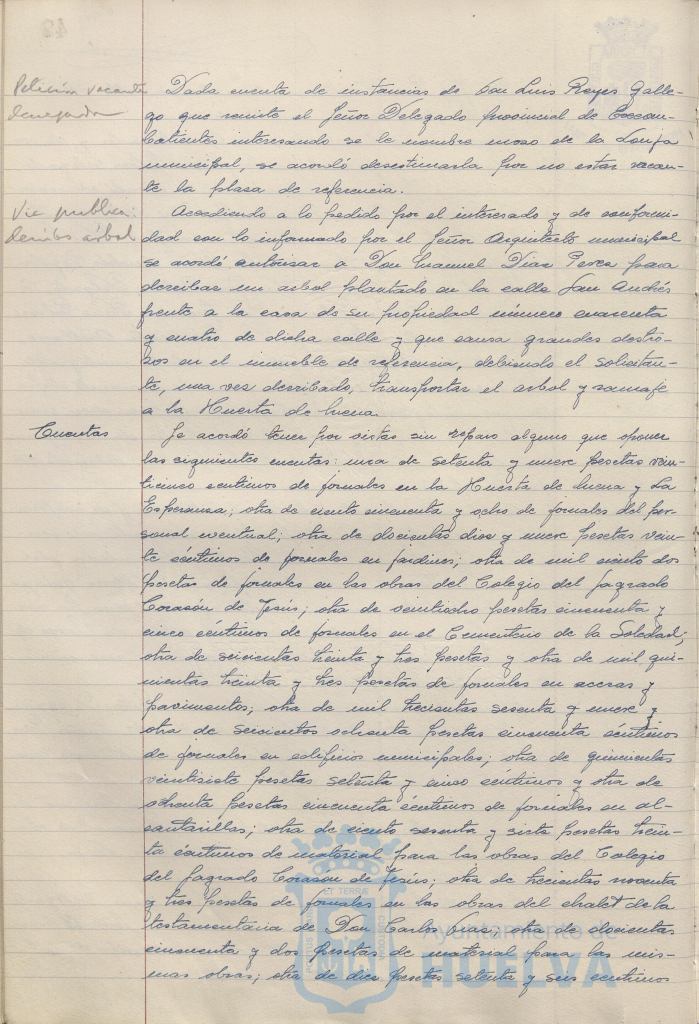 Petición vacante
denegada
Dada cuenta de instancias de Don Luis Reyes Galle-
go que remite el Señor Delegado provincial de Excom-
batientes interesando se le nombre moso de la Lonja
municipal, se acordó desestimarla por no estar vacan-
te la plasa de referencia.
Vía publica:
derribo árbol
Accediendo a lo pedido por el interesado y de conformi-
dad con lo informado por el Señor Arquitecto municipal
se acordó autorisar a Don Manuel Dias Peres para
derribar un arbol plantado en la calle San Andrés
frente a la casa de su propiedad número cuarenta
y cuatro de dicha calle y que causa grandes destro-
sos en el inmueble de referencia, debiendo el solicitan-
te, una ves derribado, transportar el arbol y ramaje
a la Huerta de Mena.
Cuentas
Se acordó tener por vistas sin reparo alguno que oponer
las siguientes cuentas: una de setenta y nueve pesetas vein-
ticinco centimos de jornales en la Huerta de Mena y La
Esperansa; otra de ciento cincuenta y ocho de jornales del per-
sonal eventual; otra de doscientas dies y nueve pesetas vein-
te céntimos de jornales en jardines; otra de mil ciento dos
pesetas de jornales en las obras del Colegio del Sagrado
Corasón de Jesús; otra de veintiocho pesetas cincuenta y
cinco céntimos de jornales en el Cementerio de la Soledad;
otra de seiscientas treinta y tres pesetas y otra de mil qui-
nientas treinta y tres pesetas de jornales en aceras y
pavimentos; otra de mil trescientas sesenta y nueve y
otra de seiscientos ochenta pesetas cincuenta céntimos
de jornales en edificios municipales; otra de quinientas
veintisiete pesetas setenta y cinco céntimos y otra de
ochenta pesetas cincuenta céntimos de jornales en al-
cantarillas; otra de ciento sesenta y siete pesetas trein-
ta céntimos de material para las obras del Colegio
del Sagrado Corasón de Jesús; otra de trescientas noventa
y tres pesetas de jornales en las obras del chalet de la
testamentaria de Don Carlos otra de doscientas
cincuenta y dos pesetas de material para las mis-
mas obras; otra de dies pesetas setenta y seis centimos
Ayuntamiento de
HUELVA